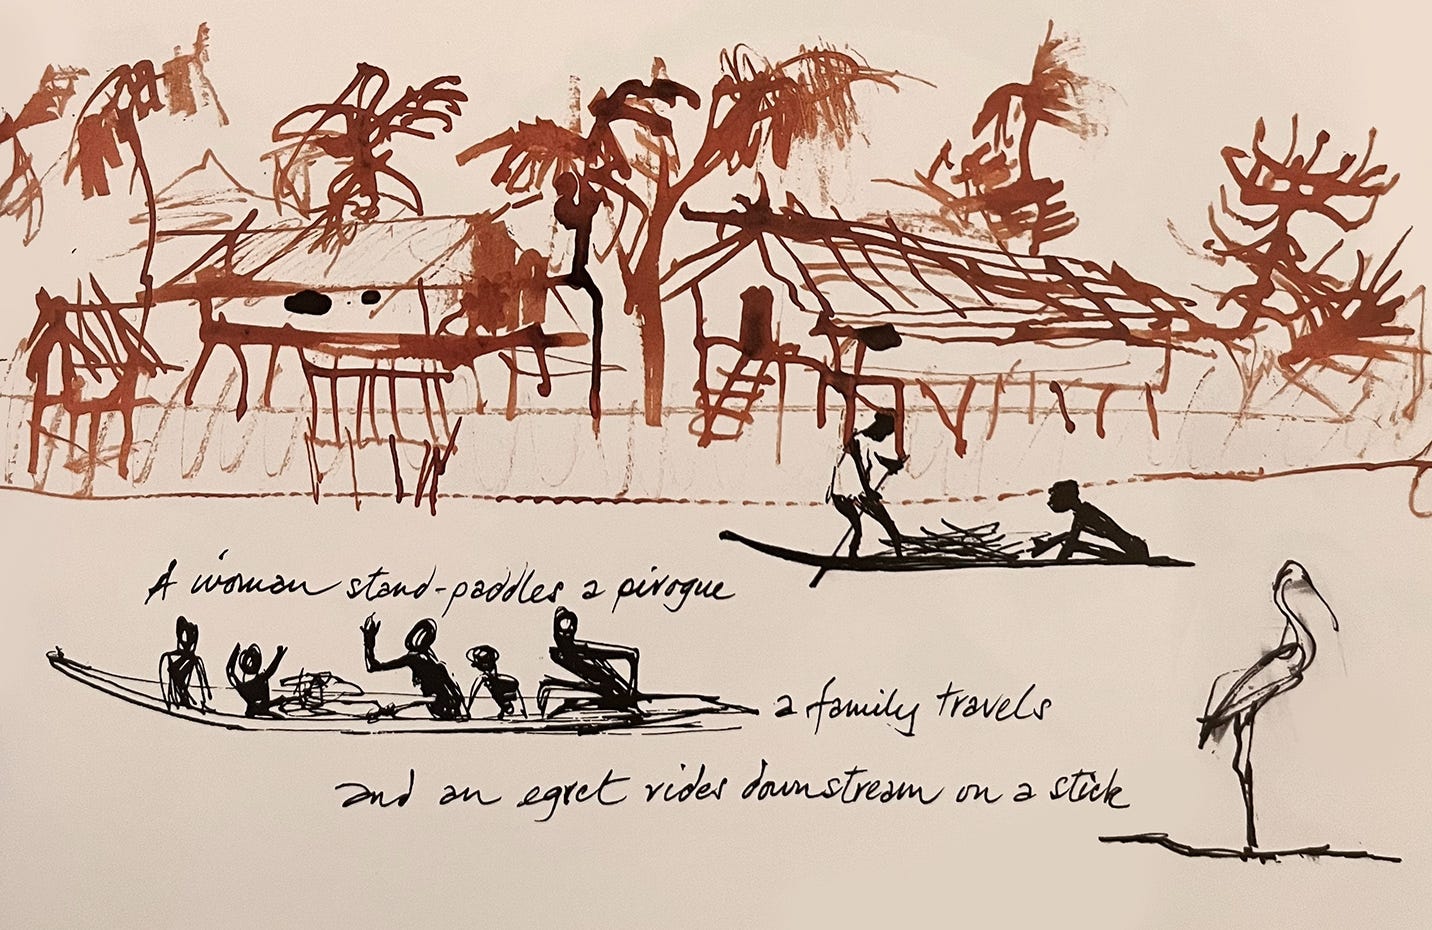 A woman stand-paddles a pirogue
a family travels
and an egret rides downstream on a stick